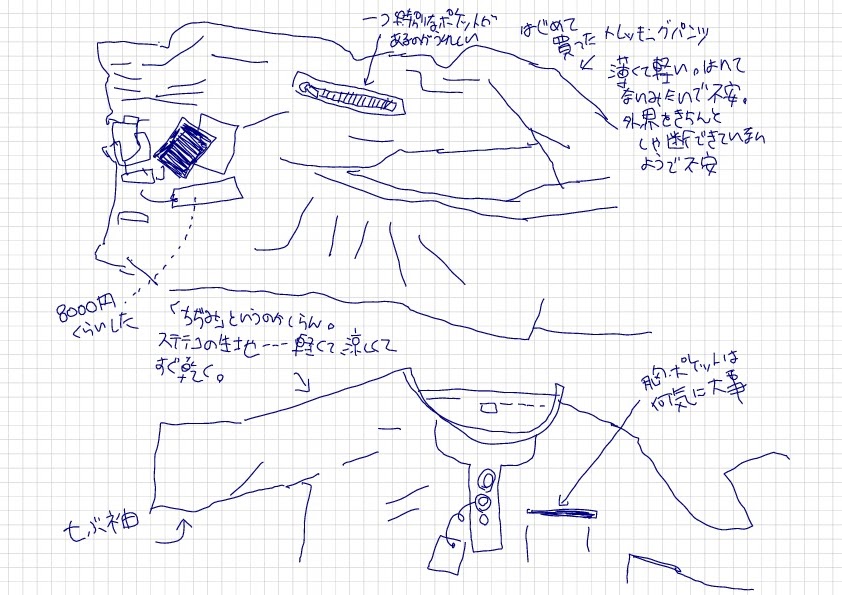 一つ特別なポケットが
あるのがうれしい
はじめて
買ったトレッキングパンツ
薄くて軽い。はいて
ないみたいで不安。
外界をきちんと
しゃ断できていない
ようで不安
8000円
くらいした
「ちぢみ」というのかしらん。
ステテコの生地や---軽くて涼しくて
すぐ乾く。
胸ポケットは
何気に大事
七ぶ袖